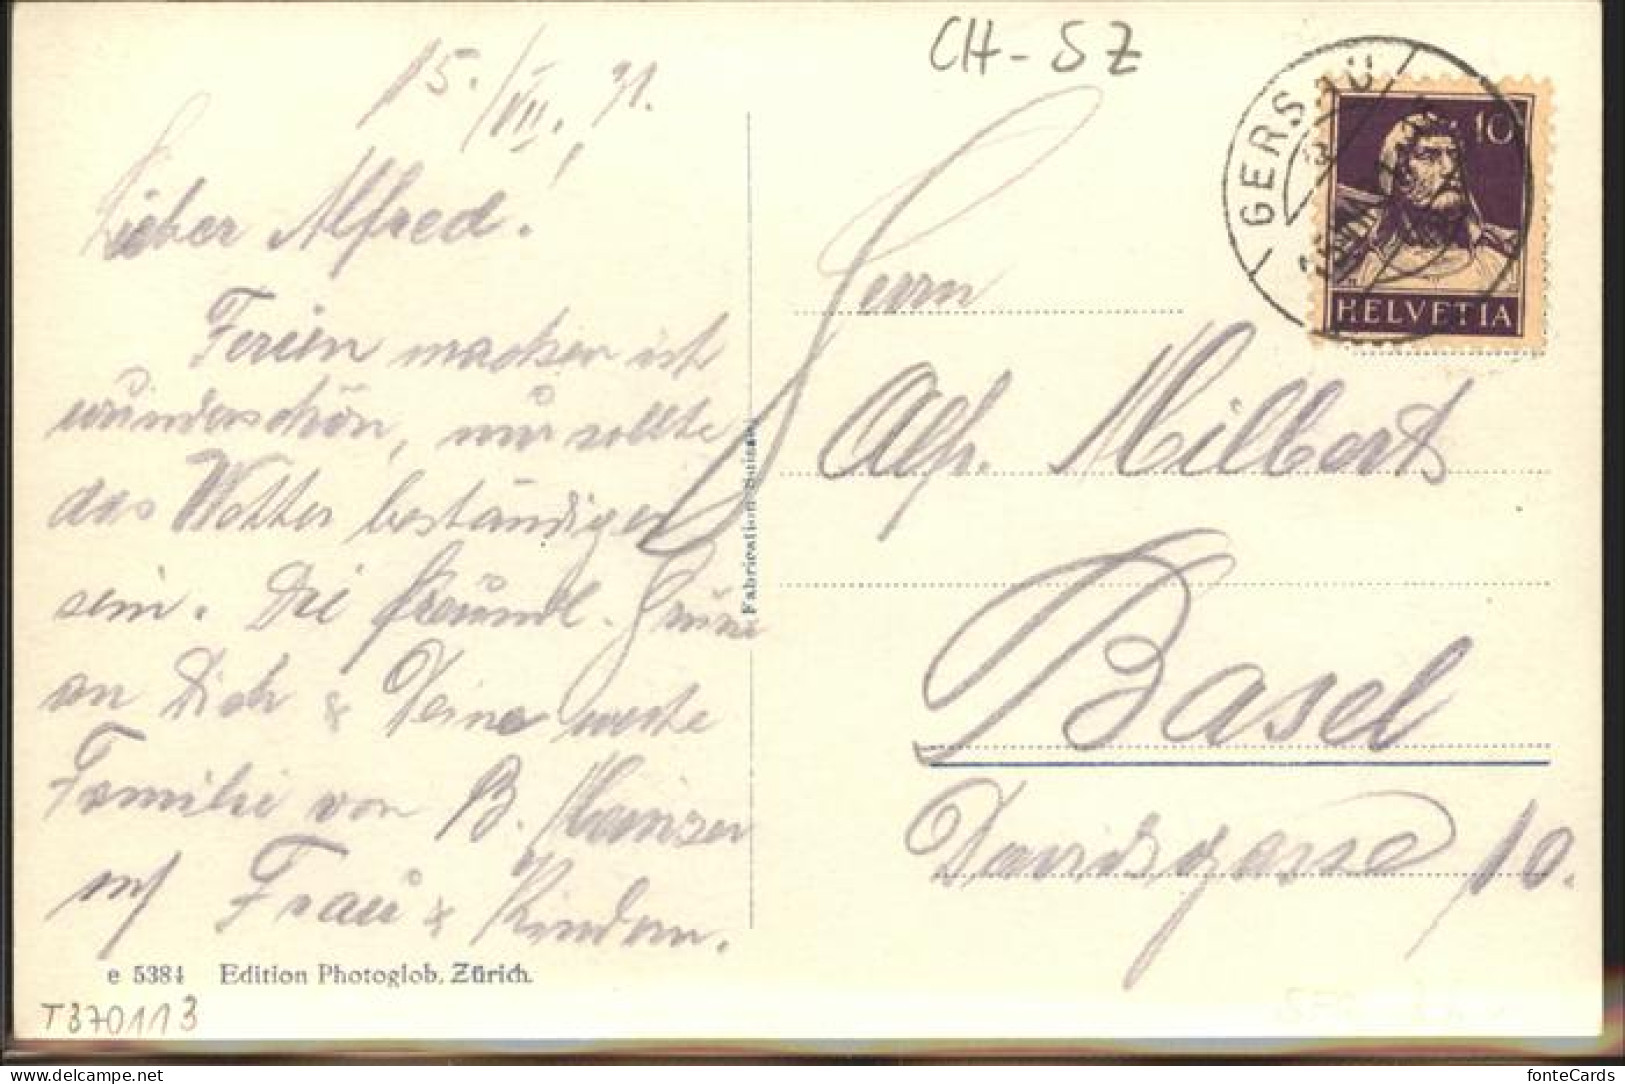 CH-SZ
15./VII. 31.
Lieber Alfred!
Ferien machen ist
wunderschön, nur sollte
das Wetter beständiger
sein. Die freundl. Grüsse
an Dich & Deine werte
Familie von B.
mit Frau & Kindern.
e 5384 Edition Photoglob, Zürich.
T370113
Fabrication Suisse
GERSAU
10
HELVETIA
Herrn
Alf. Hilbert
Basel
Davidsgasse 10.
fonteCards